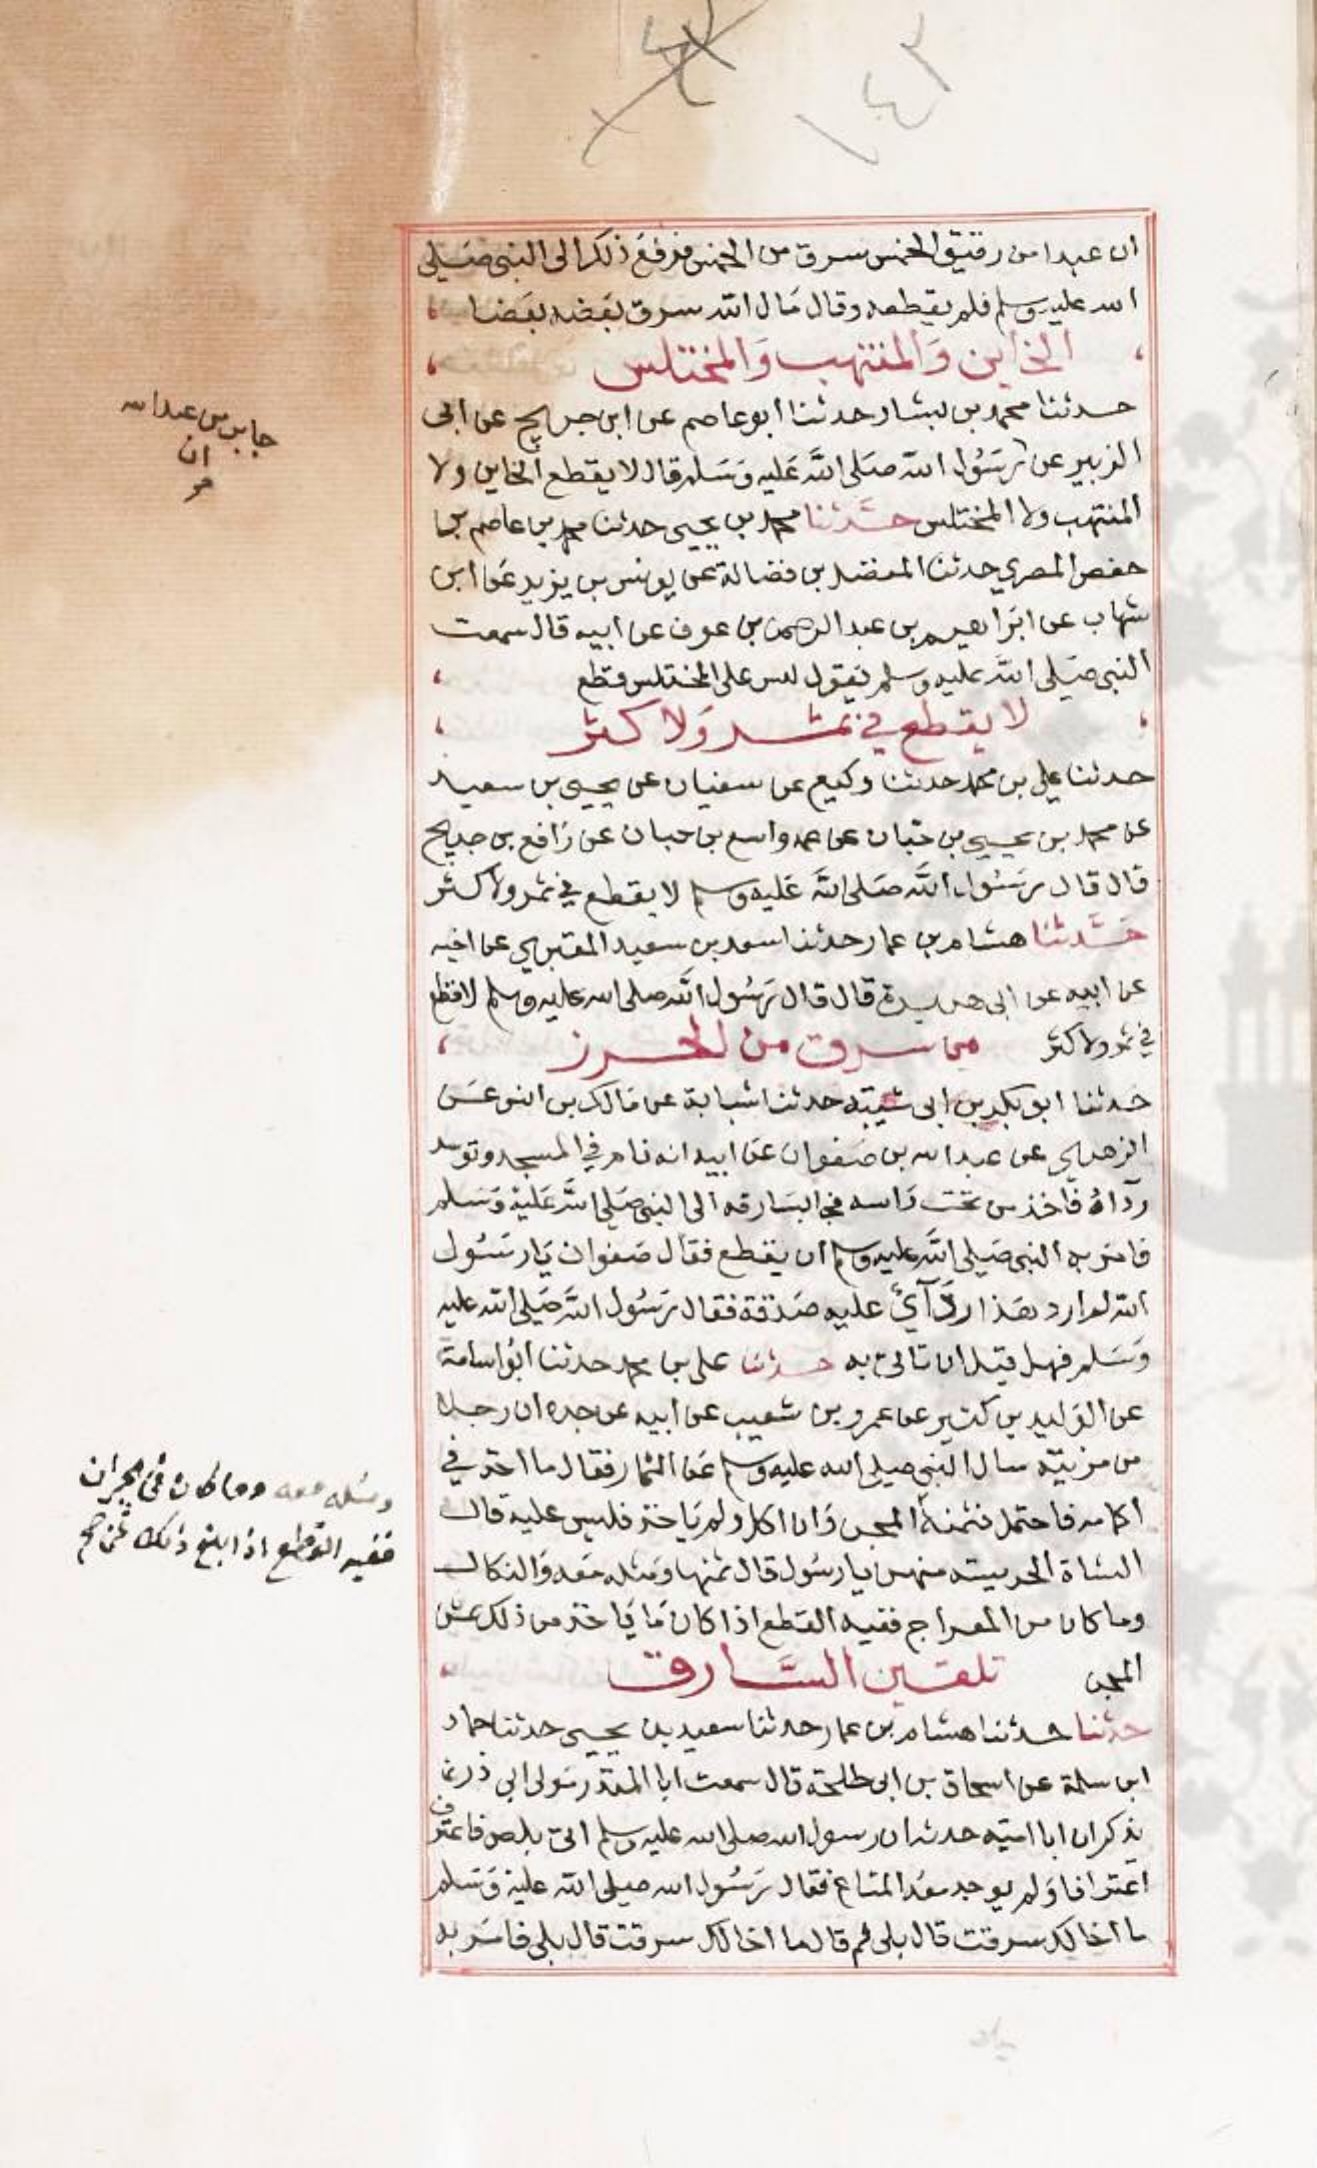 ١٤٣
ان عبدا من رقيق الخمس سرق من الخمس فرفع ذلك الى النبي صَلى
الله عليه وسلم فلم يقطعه وقال مَال الله سرق بَعَضه بَعَضا
الخاين وَالمنتهب وَالمختلس
حدثنا محمد بن بشار حدثنا ابو عاصم عن ابن جريج عن ابى
الزبير عن رسُول الله صَلى اللَّه عَليه وَسَلم قال لا يقطع الخاين ولا
المنتهب ولا المختلس حدثنا محمد بن يحيى حدثنا محمد بن عاصم بن
حفص المصري حدثنا المفضل بن فضالة عن يونس بن يزيد عن ابن
شهاب عن ابراهيم بن عبد الرحمن بن عوف عن ابيه قال سمعت
النبي صَلى الله عليه وسلم يَقول ليس على المختلس قطع
لا يقطع في ثمر وَلا كثر
حدثنا علي بن محمد حدثنا وكيع عن سفيان عن يحيى بن سعيد
عن محمد بن يحيى بن حبان عن عمه واسع بن حبان عن رَافع بن خديج
قال قال رسُول اللَّه صَلى اللَّه عَليه وسلم لا يقطع في ثمر ولا كثر
حدثنا هشام بن عمار حدثنا سعد بن سعيد المقبري عن اخيه
عن ابيه عن ابى هريرة قال قال رسُول اللَّه صلى الله عليه وسلم لا قطع
في ثمر ولا كثر من سرق من الحرز
حدثنا ابو بكر بن ابى شيبة حدثنا شبابة عن مَالك بن انس عَن
الزهري عن عبد الله بن صَفوان عن ابيه انه نام في المسجد وتوسد
رداهُ فأخذ من تحت رَاسه فجا بسَارقه الى النبي صَلى اللَّه عَليه وَسَلم
فامَر به النبي صَلى اللَّه عليه وسلم ان يقطع فقال صَفوان يَا رسُول
الله لم ارد هَذا ردآئ عليه صَدقة فقال رسُول اللَّه صَلى الله عليه
وسَلم فهلا قبل ان تاتى به حدثنا على بن محمد حدثنا ابُو اسامة
عن الوَليد بن كثير عن عمرو بن شعيب عن ابيه عن جده ان رجلا
من مزينة سال النبي صلى الله عليه وسلم عن الثمار فقال ما اخذ في
اكمامه فاحتمل فثمنهُ المجن وَان اكل ولم يَاخذ فليس عليه قال
الشاة الحريسة منهن يا رسُول قال ثمنها وَمثله مَعه وَالنكال
وما كان من المراح ففيه القطع اذا كان مَا يَاخذ من ذلك ثمن
المجن تلقين السَّارق
حدثنا حدثنا هشام بن عمار حدثنا سعيد بن يحيى حدثنا حماد
ابن سلمة عن اسحاق بن ابى طلحة قال سمعت ابا المنذر مَولى ابى ذر
يذكر ان ابا امية حدثه ان رسول الله صلى الله عليه وسلم اتى بلص فاعترف
اعترافا وَلم يوجد معُه المتاع فقال رسُول الله صلى الله عليه وَسَلم
ما اخالك سرقت قال بلى ثم قال ما اخالك سرقت قال بلى فامَر به
جابر بن عبد الله
ان
ومثله معه وما كان في الجران
ففيه القطع اذا بلغ ذلك ثمن